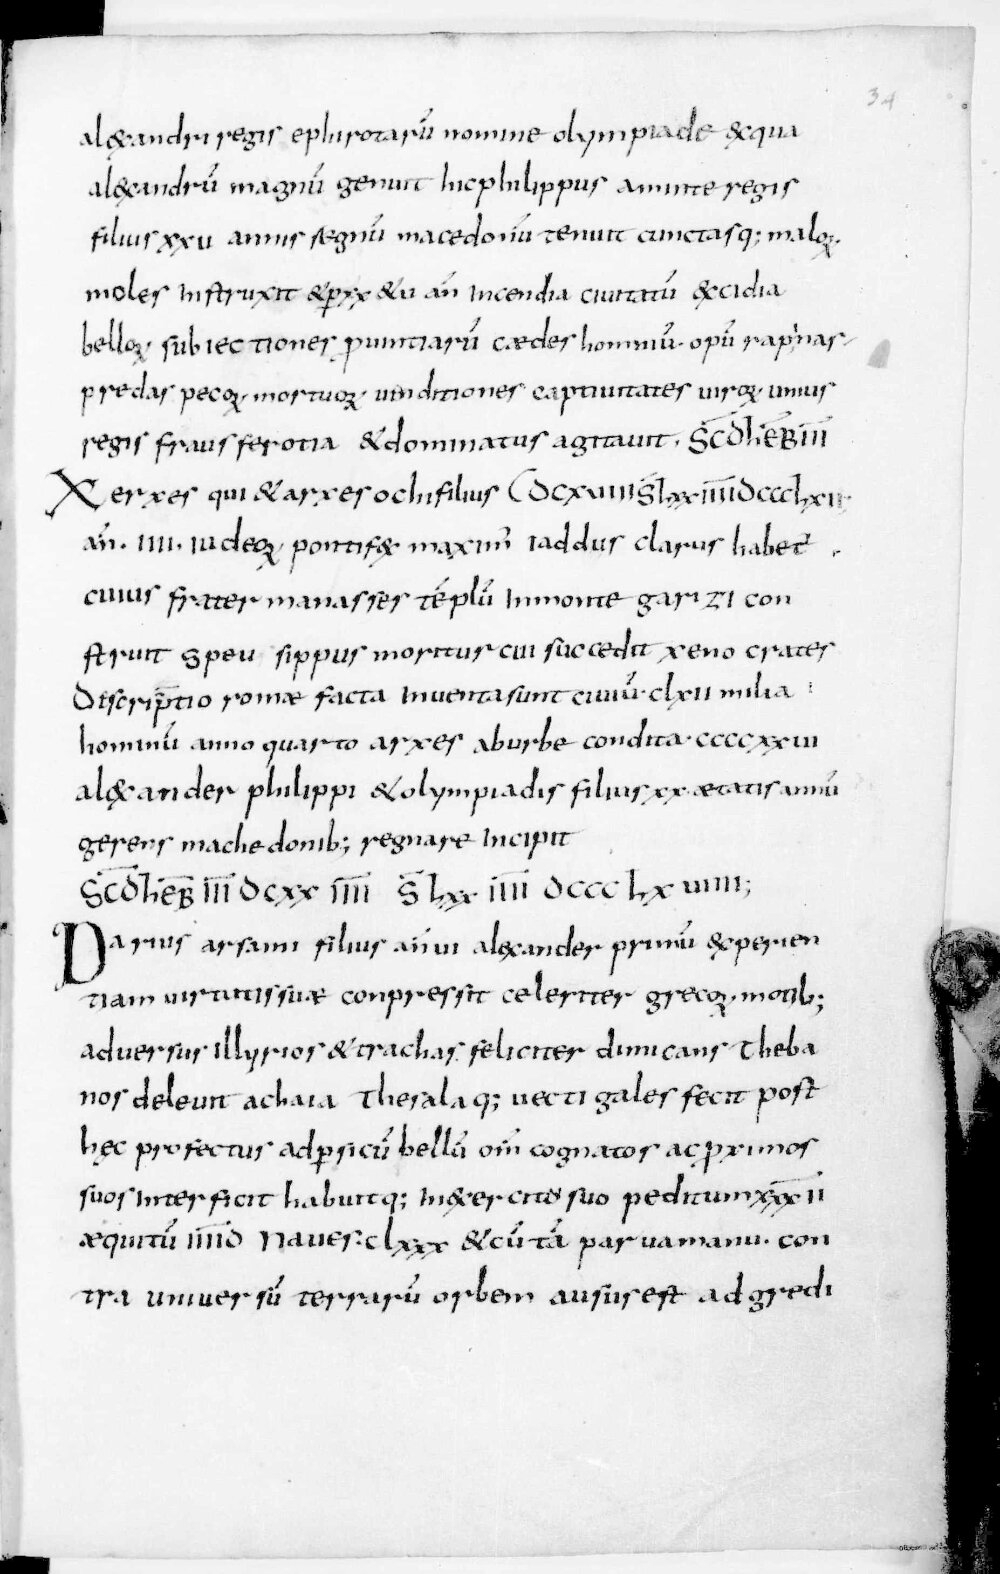 34
al&xandri regis ephirotarū nomine olympiade &xqua
al&xandrū magnū genuit hicphilippus aminte regis
filius xxv annis regnū macedonū tenuit cunctasq; maloꝝ.
moles instruxit & ꝑ xx & v an̄ incendia ciuitatū &xcidia
belloꝝ. subiectiones ꝓuintiarū cædes hominū. opū rapinas.
predas pecoꝝ. mortuoꝝ. uinditiones captiuitates uiroꝝ. unius
regis fraus ferotia & dominatus agitauit. SC̄DHEB̄ III
Xerxes qui & arxes ochifilius
an̄. IIII. iudeoꝝ pontif&x maxim̄ iaddus clarus habet
cuius frater manasses tēplū inmonte garizi con
struit speu sippus moritur cui succedit xeno crates
Discrip̄tio romæ facta inuentasunt ciuiū. clxii milia
hominū anno quarto arxes aburbe condita. ccccxxiii
al&xander philippi & olympiadis filius xx ætatis annū
gerens machedonib; regnare incipit
SC̄DHEB̄ III DCXX IIII S̄ LXX IIII DCCC LX VIIII;
Darius arsami filius an̄ vi al&xander primū &xperien
tiam uirtutissuæ conpressit celeriter grecoꝝ. motib;
aduersus illyrios & trachas feliciter dimicans theba
nos deleuit achaia thesalaq; uecti gales fecit post
hęc profectus adꝑsicū bellū om̄ cognatos acꝓximos
suos interficit habuitq; in&xercito suo peditum XXXII
æquitū IIIID naues. clxxx & cū tā paruamanu. con
tra uniuersū terrarū orbem aususest adgredi